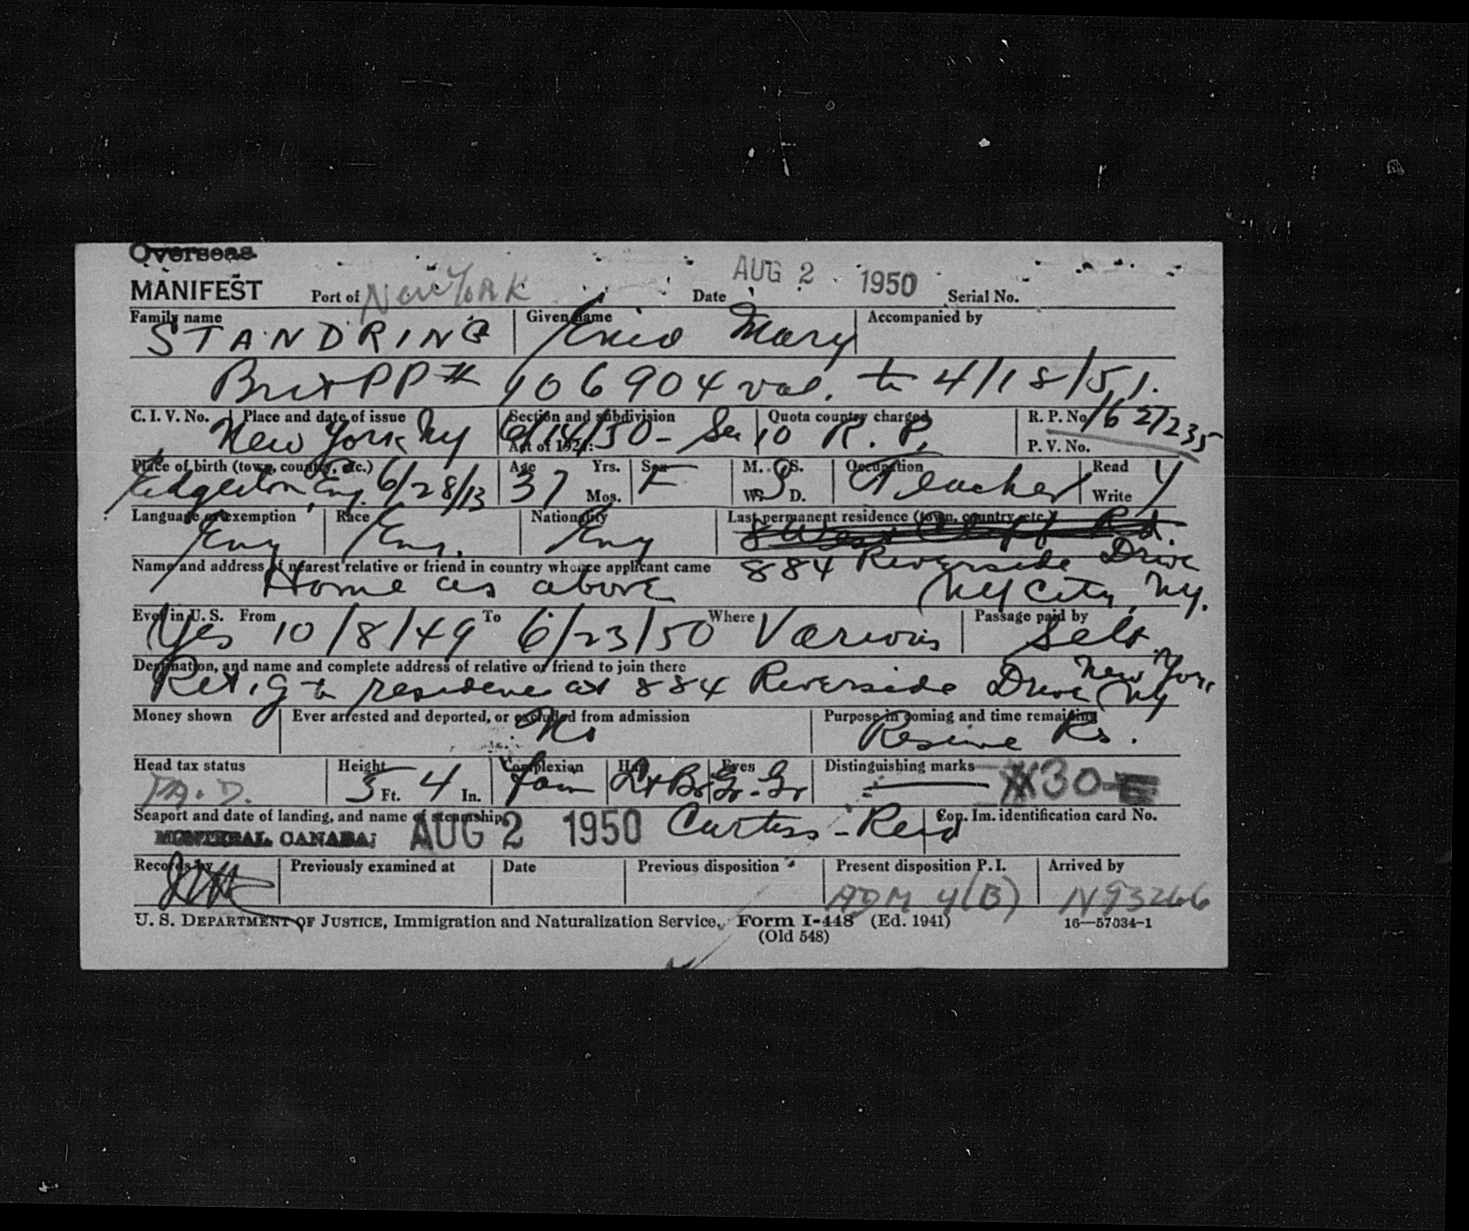 Overseas
MANIFEST Port of New York Date AUG 2 1950 Serial No.
Family name Given name Accompanied by
STANDRING Enid Mary
Brit PP # 106904 val. to 4/18/51.
C. I. V. No. Place and date of issue Section and subdivision Quota country charged R. P. No. 1621235
New York NY 6/14/50 - Sec 10 R. P.
Act of 1924: P. V. No.
Place of birth (town, country, etc.) Age Yrs. Sex M. S. Occupation Read
Edgerton, Eng. 6/28/13 37 Mos. F W. D. S Teacher Write Y
Language or exemption Race Nationality Last permanent residence (town, country, etc.)
Eng Eng. Eng 8 West Cliff Rd.
Name and address of nearest relative or friend in country whence applicant came 884 Riverside Drive
Home as above NY City, NY.
Ever in U. S. From To Where Passage paid by
Yes 10/8/49 6/23/50 Various Self
Destination, and name and complete address of relative or friend to join there
Ret'g to residence at 884 Riverside Drive New York NY
Money shown Ever arrested and deported, or excluded from admission Purpose in coming and time remaining
No Resume Rs.
Head tax status Height Complexion Hair Eyes Distinguishing marks
5 Ft. 4 In. Fair Lt Br Gr-Gr 30
Seaport and date of landing, and name of steamship Cop. Im. identification card No.
MONTREAL CANADA; AUG 2 1950 Curtiss-Reid
Records by Previously examined at Date Previous disposition Present disposition P. I. Arrived by
ADM 4(B) N93266
U. S. DEPARTMENT OF JUSTICE, Immigration and Naturalization Service, Form I-448 (Ed. 1941) 16—57034-1
(Old 548)